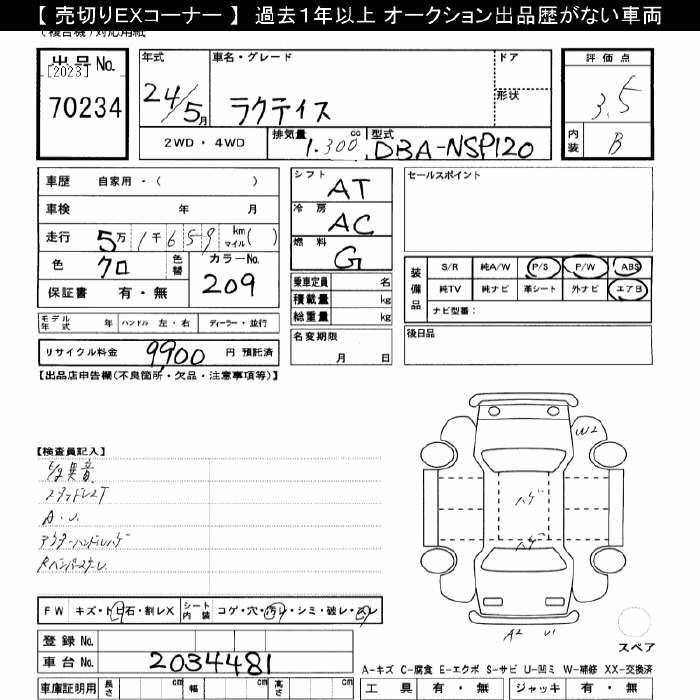 【 売切りEXコーナー 】 過去1年以上 オークション出品歴がない車両
(複合機)対応用紙
出品No.
[2023]
70234
年式
24/5月
車名・グレード
ラクティス
ドア
形状
評価点
3.5
内装
B
2WD・4WD
排気量
1.300cc
型式
DBA-NSP120
車歴 自家用・( )
車検 年 月
走行 5万1千659 km マイル( )
色 クロ 色替
カラーNo.
209
保証書 有・無
シフト
AT
冷房
AC
燃料
G
乗車定員 名
積載量 kg
総重量 kg
セールスポイント
装備品
S/R 純A/W P/S P/W ABS
純TV 純ナビ 革シート 外ナビ エアB
ナビ型番:
モデル年式 年 ハンドル 左・右 ディーラー・並行
リサイクル料金 9900 円 預託済
名変期限
月 日
後日品
【出品店申告欄(不良箇所・欠品・注意事項等)】
【検査員記入】
E/g異音
スタッドレスT
A.U.
アウターハンドルハゲ
RバンパースレL
W2
ハゲ
ハゲ
A2 U1
スペア
FW キズ・トビ石・割レX シート内装 コゲ・穴・汚レ・シミ・破レ・スレ
登録No.
車台No. 2034481
車庫証明用 長さ cm 幅 cm 高さ cm
A-キズ C-腐食 E-エクボ S-サビ U-凹ミ W-補修 XX-交換済
工具 有・無 ジャッキ 有・無